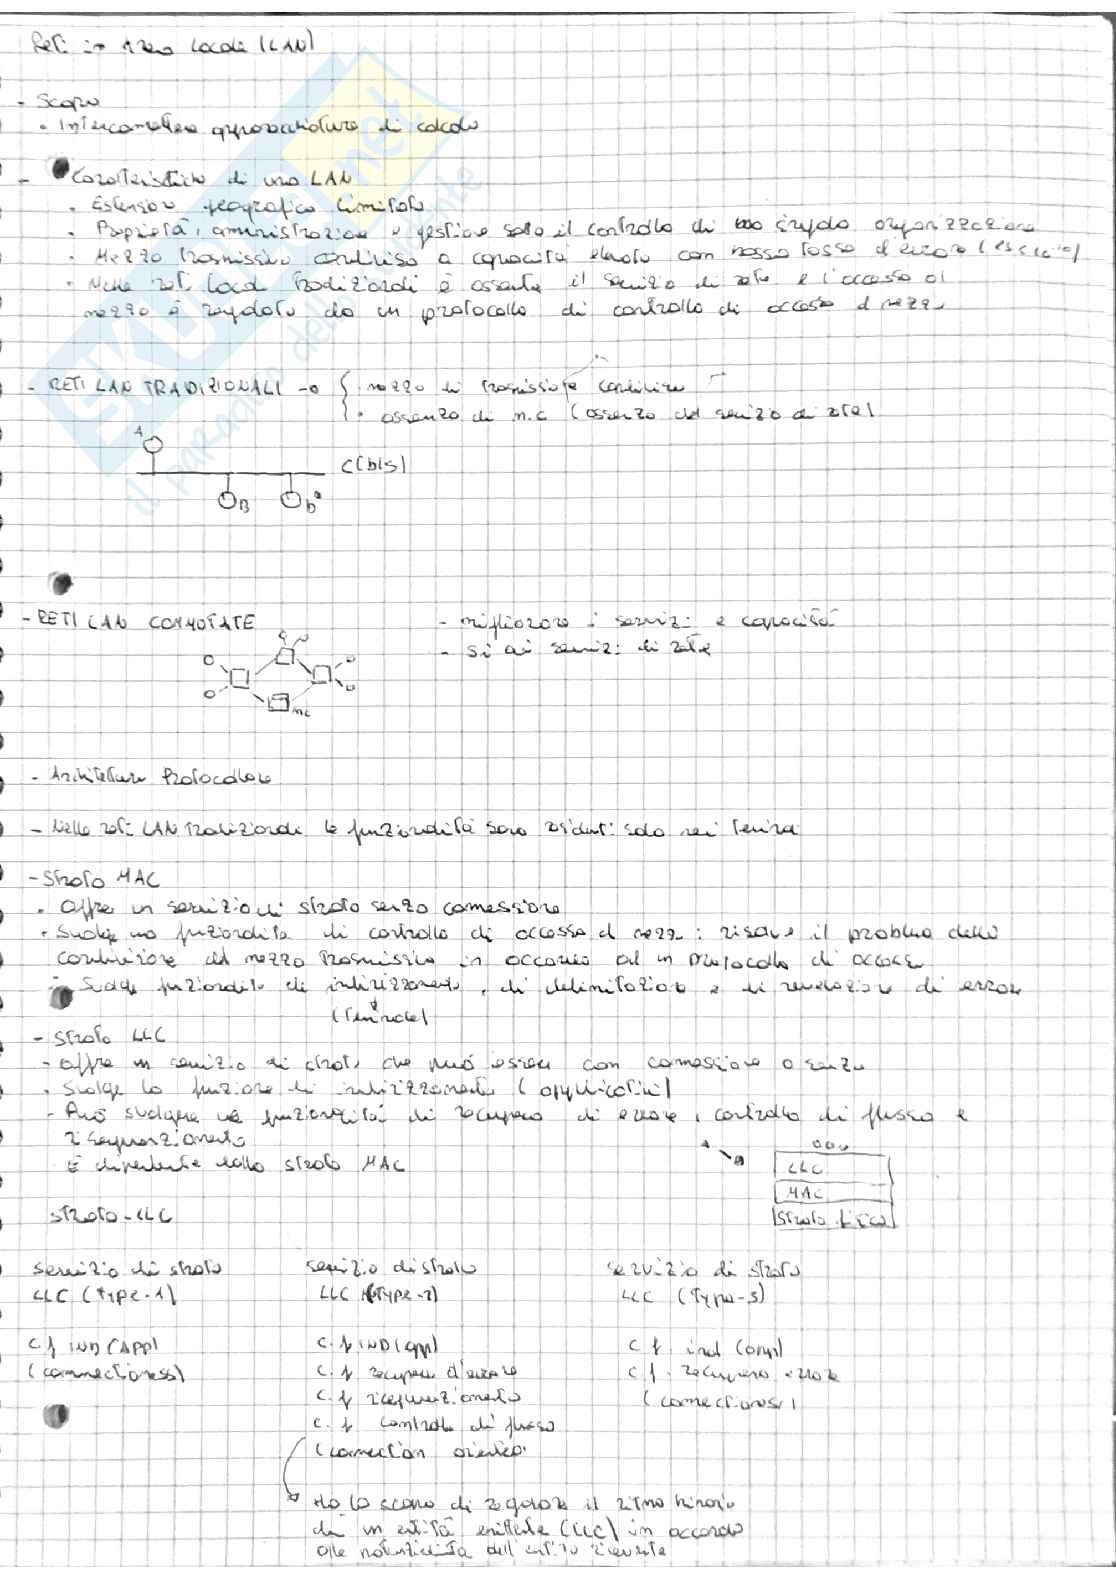 Reti in Area Locale (LAN)
- Scopo
• Interconnettere apparecchiature di calcolo
- Caratteristiche di una LAN
• Estensione geografica limitata
• Proprietà, amministrazione e gestione sotto il controllo di una singola organizzazione
• Mezzo trasmissivo condiviso a capacità elevata con basso tasso d'errore
• Nelle reti locali tradizionali è assente il servizio di rete e l'accesso al
mezzo è regolato da un protocollo di controllo di accesso al mezzo
- RETI LAN TRADIZIONALI → { • mezzo di trasmissione condiviso
• assenza di n.c (assenza del servizio di rete)
A
C(b/s)
B
D
- RETI LAN COMMUTATE
- migliorare i servizi e capacità
- Si ai servizi di rete
MC
- Architetture Protocollare
- Nelle reti LAN tradizionali le funzionalità sono residenti solo nei terminali
- Strato MAC
• Offre un servizio di strato senza connessione
• Svolge una funzionalità di controllo di accesso al mezzo: risolve il problema della
condivisione del mezzo trasmissivo in accordo ad un protocollo di accesso
• Svolge funzionalità di indirizzamento, di delimitazione e di rivelazione di errore
(Terminale)
- Strato LLC
- Offre un servizio di strato che può essere con connessione o senza
• Svolge la funzione di indirizzamento (applicativi)
- Può svolgere una funzionalità di recupero di errore, controllo di flusso e
risequenziamento
È dipendente dallo strato MAC
LLC
MAC
Strato fisico
Strato-LLC
Servizio di strato
LLC (Type-1)
Servizio di strato
LLC (Type-2)
Servizio di strato
LLC (Type-3)
C.f IND (APP)
(connectioness)
C.f IND (app)
C.f recupero d'errore
C.f risequenziamento
C.f controllo di flusso
(connection oriented)
C f. ind (app)
C f. recupero errore
(connectionless)
Ha lo scopo di regolare il ritmo binario
di un entità emittente (LLC) in accordo
alle potenzialità dell'entità ricevente